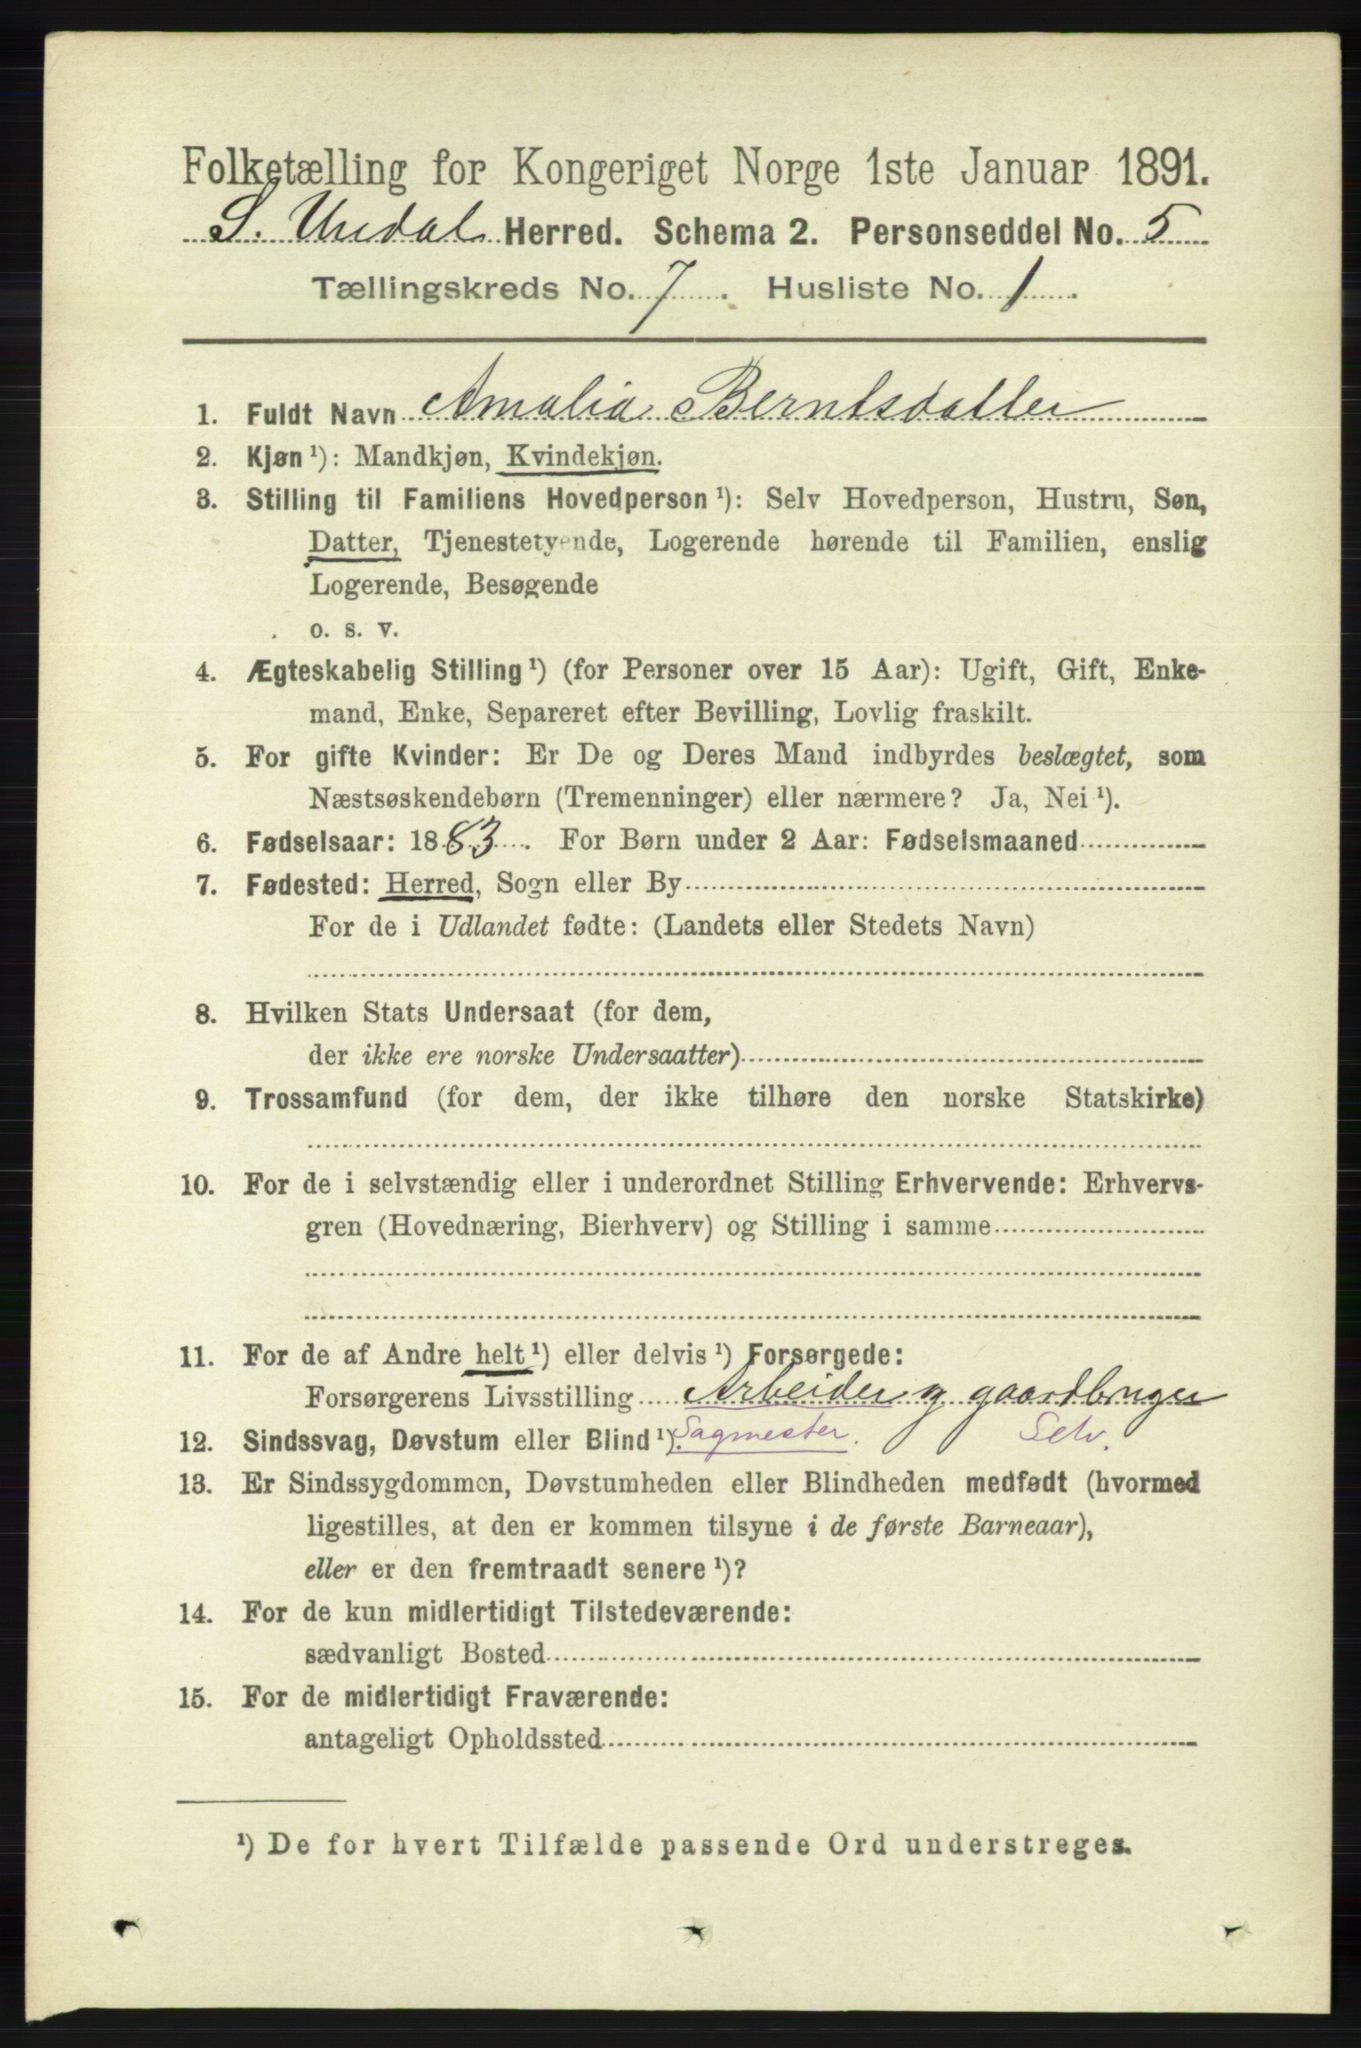 Folketælling for Kongeriget Norge 1ste Januar 1891.
S. Undal Herred. Schema 2. Personseddel No. 5
Tællingskreds No. 7. Husliste No. 1.
1. Fuldt Navn Amalia Berntsdatter
2. Kjøn ¹): Mandkjøn, Kvindekjøn.
3. Stilling til Familiens Hovedperson ¹): Selv Hovedperson, Hustru, Søn,
Datter, Tjenestetyende, Logerende hørende til Familien, enslig
Logerende, Besøgende
o. s. v.
4. Ægteskabelig Stilling ¹) (for Personer over 15 Aar): Ugift, Gift, Enke-
mand, Enke, Separeret efter Bevilling, Lovlig fraskilt.
5. For gifte Kvinder: Er De og Deres Mand indbyrdes beslægtet, som
Næstsøskendebørn (Tremenninger) eller nærmere? Ja, Nei ¹).
6. Fødselsaar: 1883. For Børn under 2 Aar: Fødselsmaaned
7. Fødested: Herred, Sogn eller By
For de i Udlandet fødte: (Landets eller Stedets Navn)
8. Hvilken Stats Undersaat (for dem,
der ikke ere norske Undersaatter)
9. Trossamfund (for dem, der ikke tilhøre den norske Statskirke)
10. For de i selvstændig eller i underordnet Stilling Erhvervende: Erhvervs-
gren (Hovednæring, Bierhverv) og Stilling i samme
11. For de af Andre helt ¹) eller delvis ¹) Forsørgede:
Forsørgerens Livsstilling Arbeider og gaardbruger
12. Sindssvag, Døvstum eller Blind ¹). Sagmester. Selv.
13. Er Sindssygdommen, Døvstumheden eller Blindheden medfødt (hvormed
ligestilles, at den er kommen tilsyne i de første Barneaar),
eller er den fremtraadt senere ¹)?
14. For de kun midlertidigt Tilstedeværende:
sædvanligt Bosted
15. For de midlertidigt Fraværende:
antageligt Opholdssted
¹) De for hvert Tilfælde passende Ord understreges.